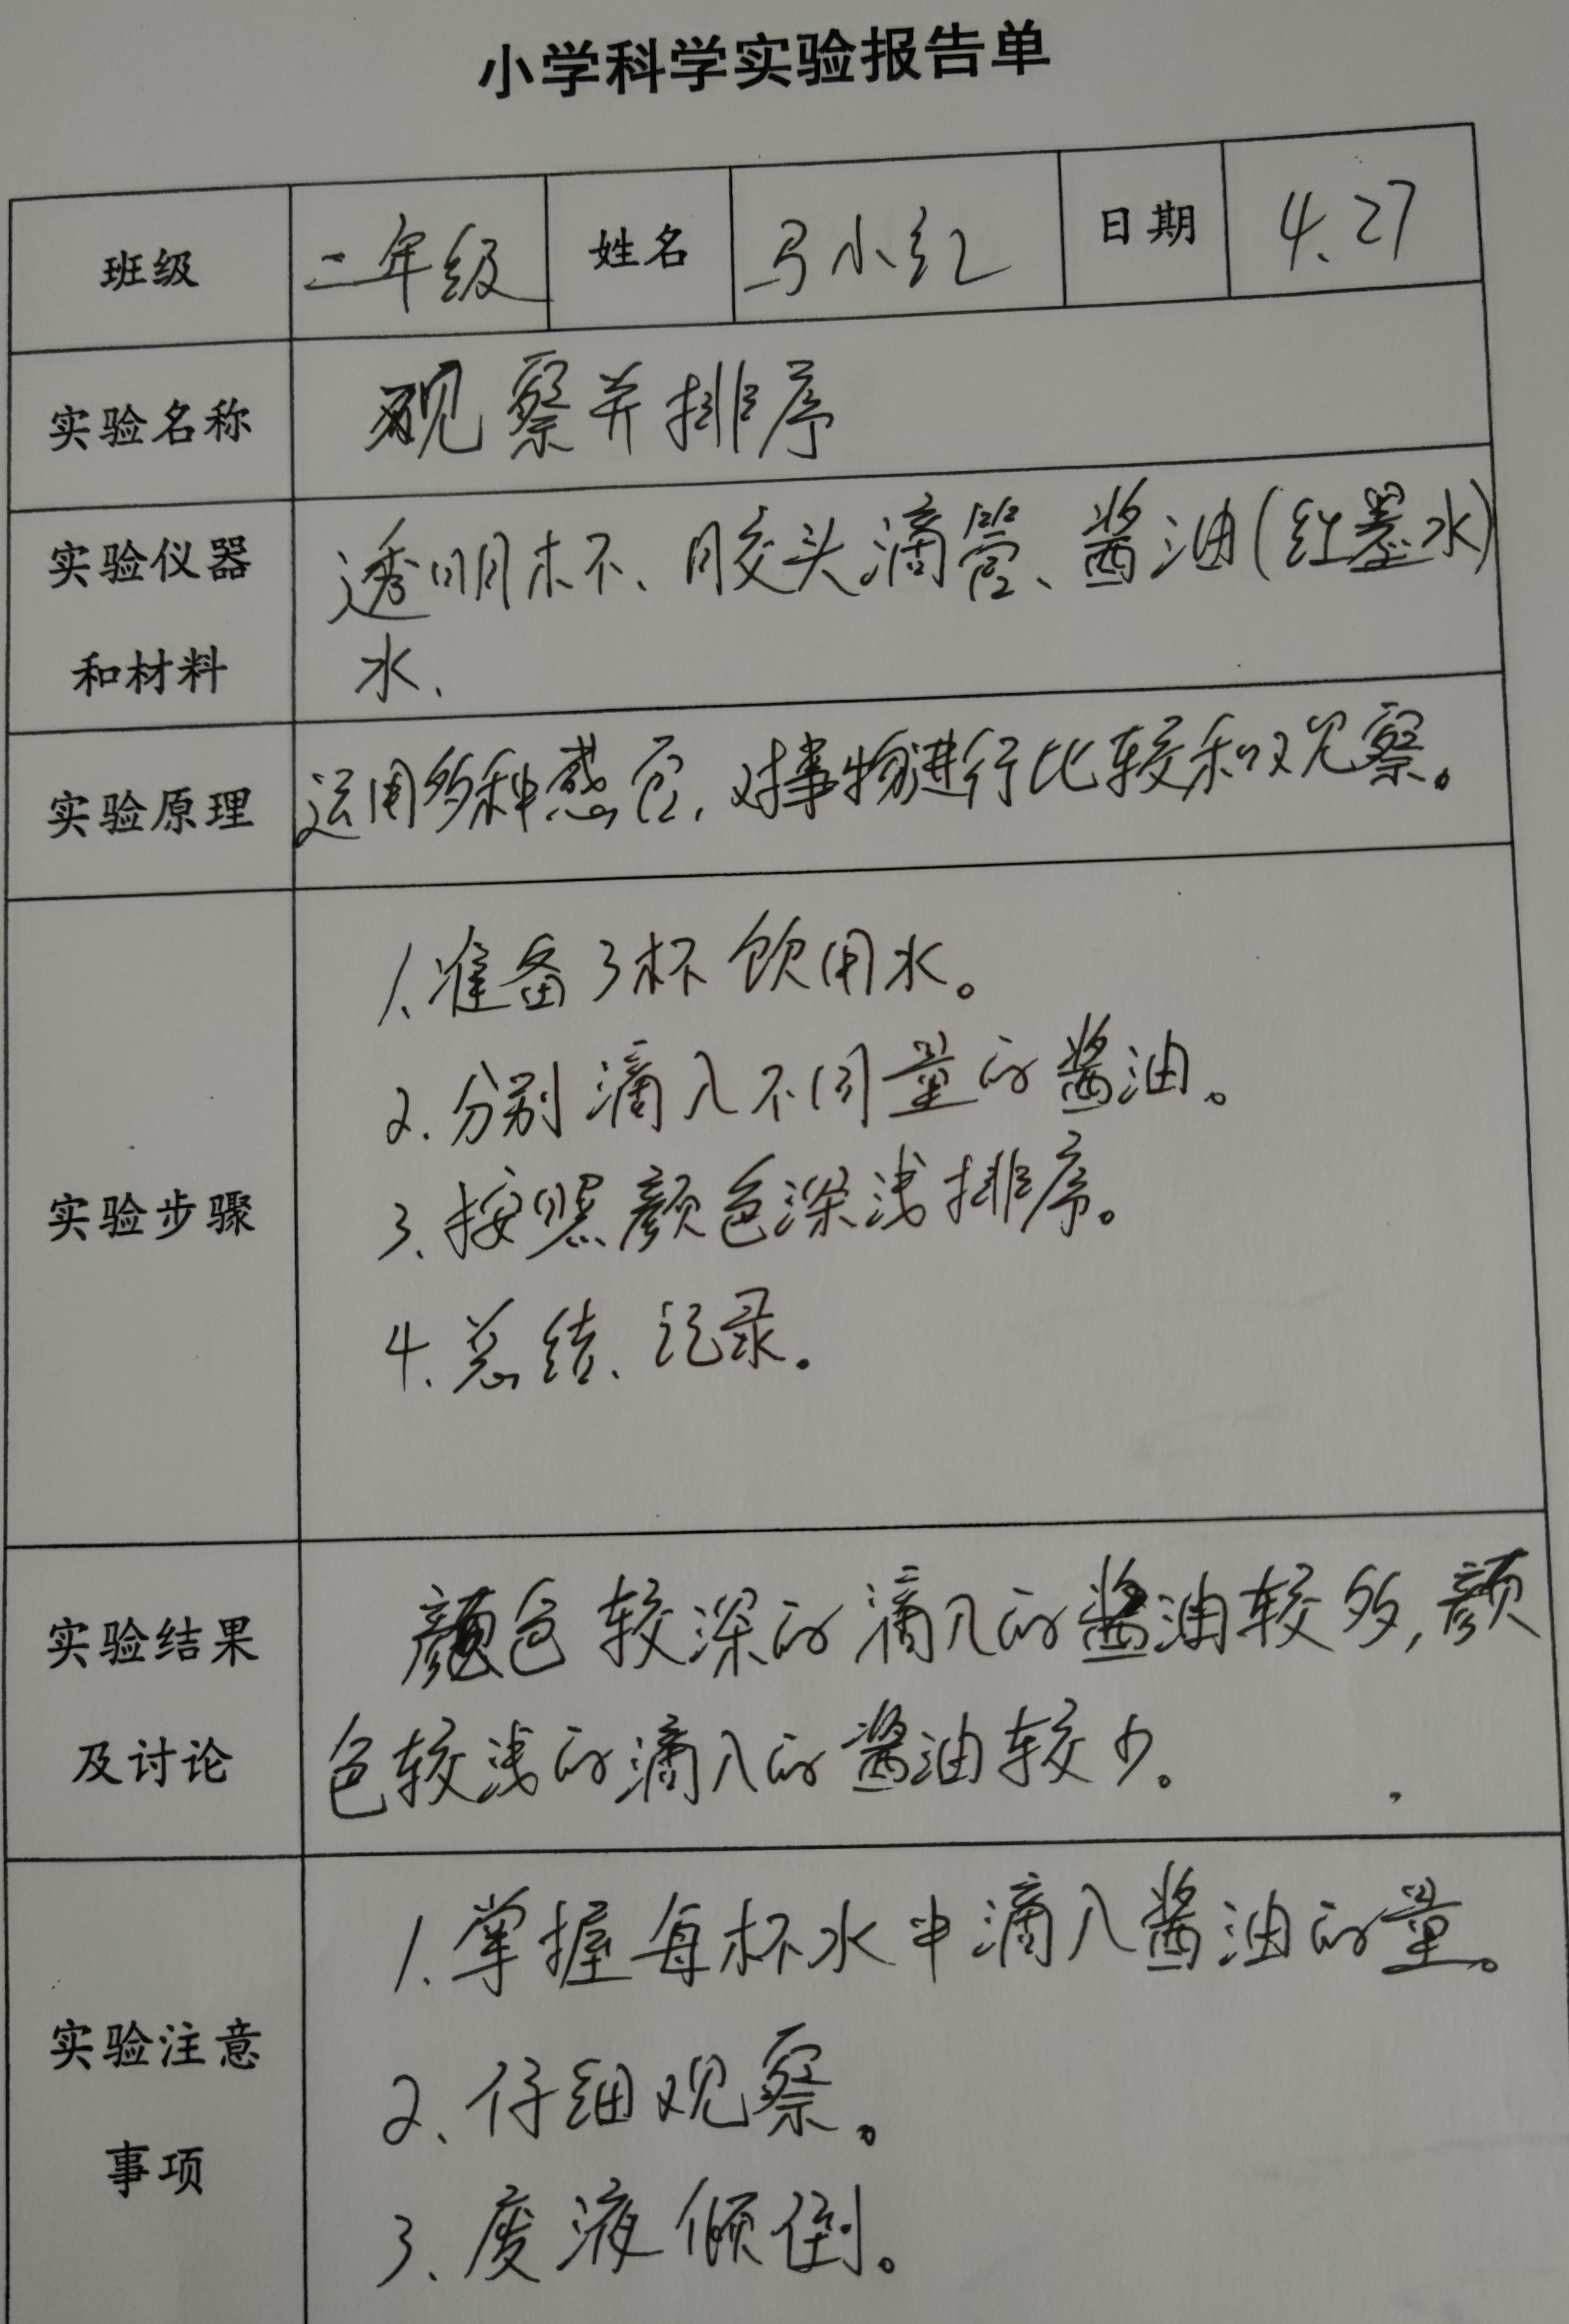 小学科学实验报告单
班级 二年级 姓名 马小红 日期 4.27
实验名称 观察并排序
实验仪器 透明杯、胶头滴管、酱油(红墨水)
和材料 水、
实验原理 运用多种感官,对事物进行比较和观察。
1.准备3杯饮用水。
2.分别滴入不同量的酱油。
实验步骤 3、按照颜色深浅排序。
4.总结、记录。
实验结果 颜色较深的滴入的酱油较多,颜
及讨论 色较浅的滴入的酱油较少。
1.掌握每杯水中滴入酱油的量。
实验注意 2、仔细观察。
事项 3、废液倾倒。